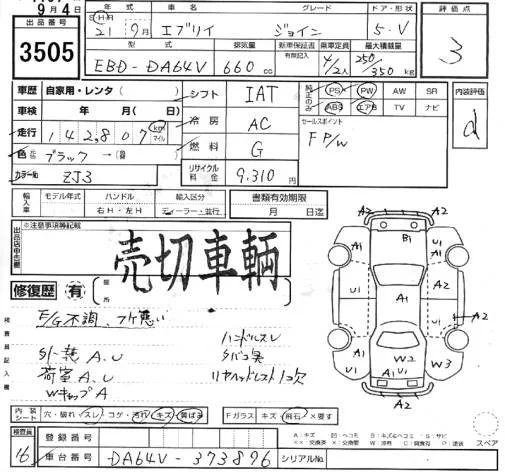 9月4日
出品番号 3505
年式 車名 グレード ドア・形状 評価点
S・H・R 21年 9月 エブリイ ジョイン 5・V 3
型式 排気量 新車保証書 乗車定員 最大積載量
EBD-DA64V 660 cc 有限記載 4/2人 250/350 kg
車歴 自家用・レンタ( ) シフト IAT 純正のみ PS PW AW SR 内装評価
車検 年 月( 日) 冷房 AC ABS エアB TV ナビ d
走行 142,807 km マイル セールスポイント
色 元色 ブラック→ 燃料 G F P/W
カラーNo ZJ3 リサイクル料金 9,310 円
輸入車 モデル年式 ハンドル 輸入区分 書類有効期限
右H・左H ディーラー・並行 月 日迄
出品店申告欄 ※注意事項等記載
売切車輌
修復歴 有 箇所
検査員記入欄
E/G不調、フケ悪い
ハンドルスレ
タバコ臭
荷室 A.U
リヤヘッドレスト1コ欠
WキャップA
内装シート 穴・破れ・スレ・コゲ・汚れ・キズ・黄ばみ Fガラス キズ・飛石・×要す
検査員 16
登録番号
車台番号 DA64V-373896 シリアルNo.
A2 A2
B1
A1 U1 U1 A1
A2
U1 A1 U1
A2
A1 A1 W2 W3
A1 U1
A2 A2
スペア